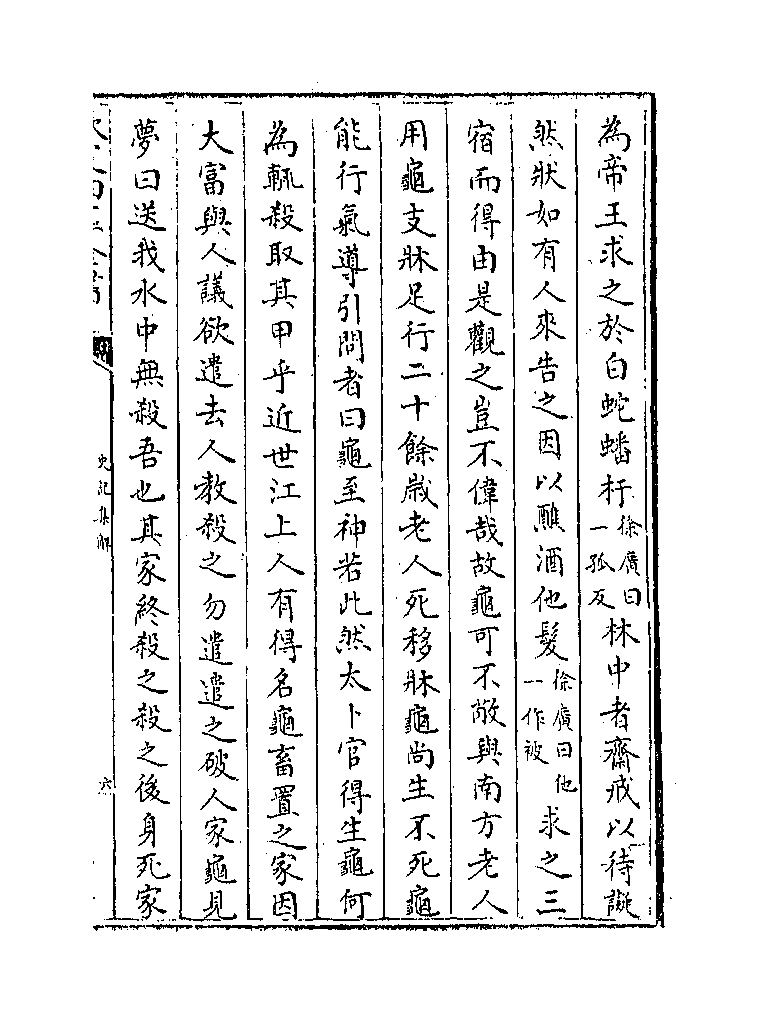 為帝王求之於白蛇蟠杅徐廣曰一孤反林中者齋戒以待譺
然狀如有人來告之因以醮酒他髮徐廣曰他一作被求之三
宿而得由是觀之豈不偉哉故龜可不敬與南方老人
用龜支牀足行二十餘歲老人死移牀龜尚生不死龜
能行氣導引問者曰龜至神若此然太卜官得生龜何
為輒殺取其甲乎近世江上人有得名龜畜置之家因
大富與人議欲遣去人教殺之勿遣遣之破人家龜見
夢曰送我水中無殺吾也其家終殺之殺之後身死家
史記集解
六